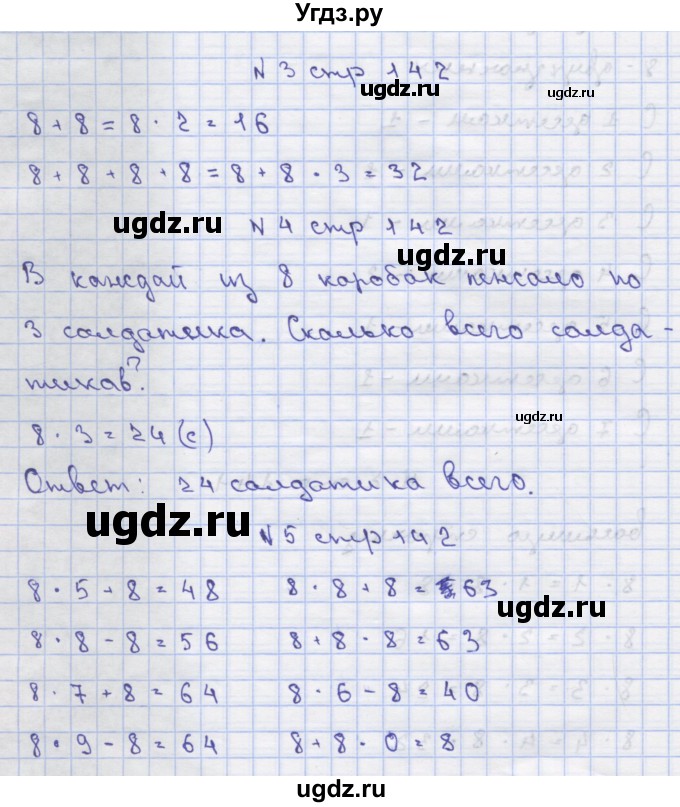 Угдз.ру
N 3 стр 142
ugdz.ru ugdz.ru
8 + 8 = 8 · 2 = 16
8 + 8 + 8 + 8 = 8 + 8 · 3 = 32
ugdz.ru N 4 стр 142
ugdz.ru
В каждой из 8 коробок лежало по
3 солдатика. Сколько всего солда-
тиков?
ugdz.ru
8 · 3 = 24 (с)
Ответ: 24 солдатика всего.
ugdz.ru
N 5 стр 142
8 · 5 + 8 = 48 8 · 8 + 8 = 63
ugdz.ru
8 · 8 - 8 = 56 8 + 8 · 8 = 63
8 · 7 + 8 = 64 8 · 6 - 8 = 40
8 · 9 - 8 = 64 8 + 8 · 0 = 8
ugdz.ru ugdz.ru